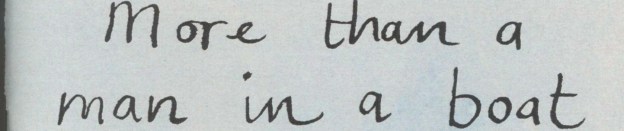 More than a
man in a boat